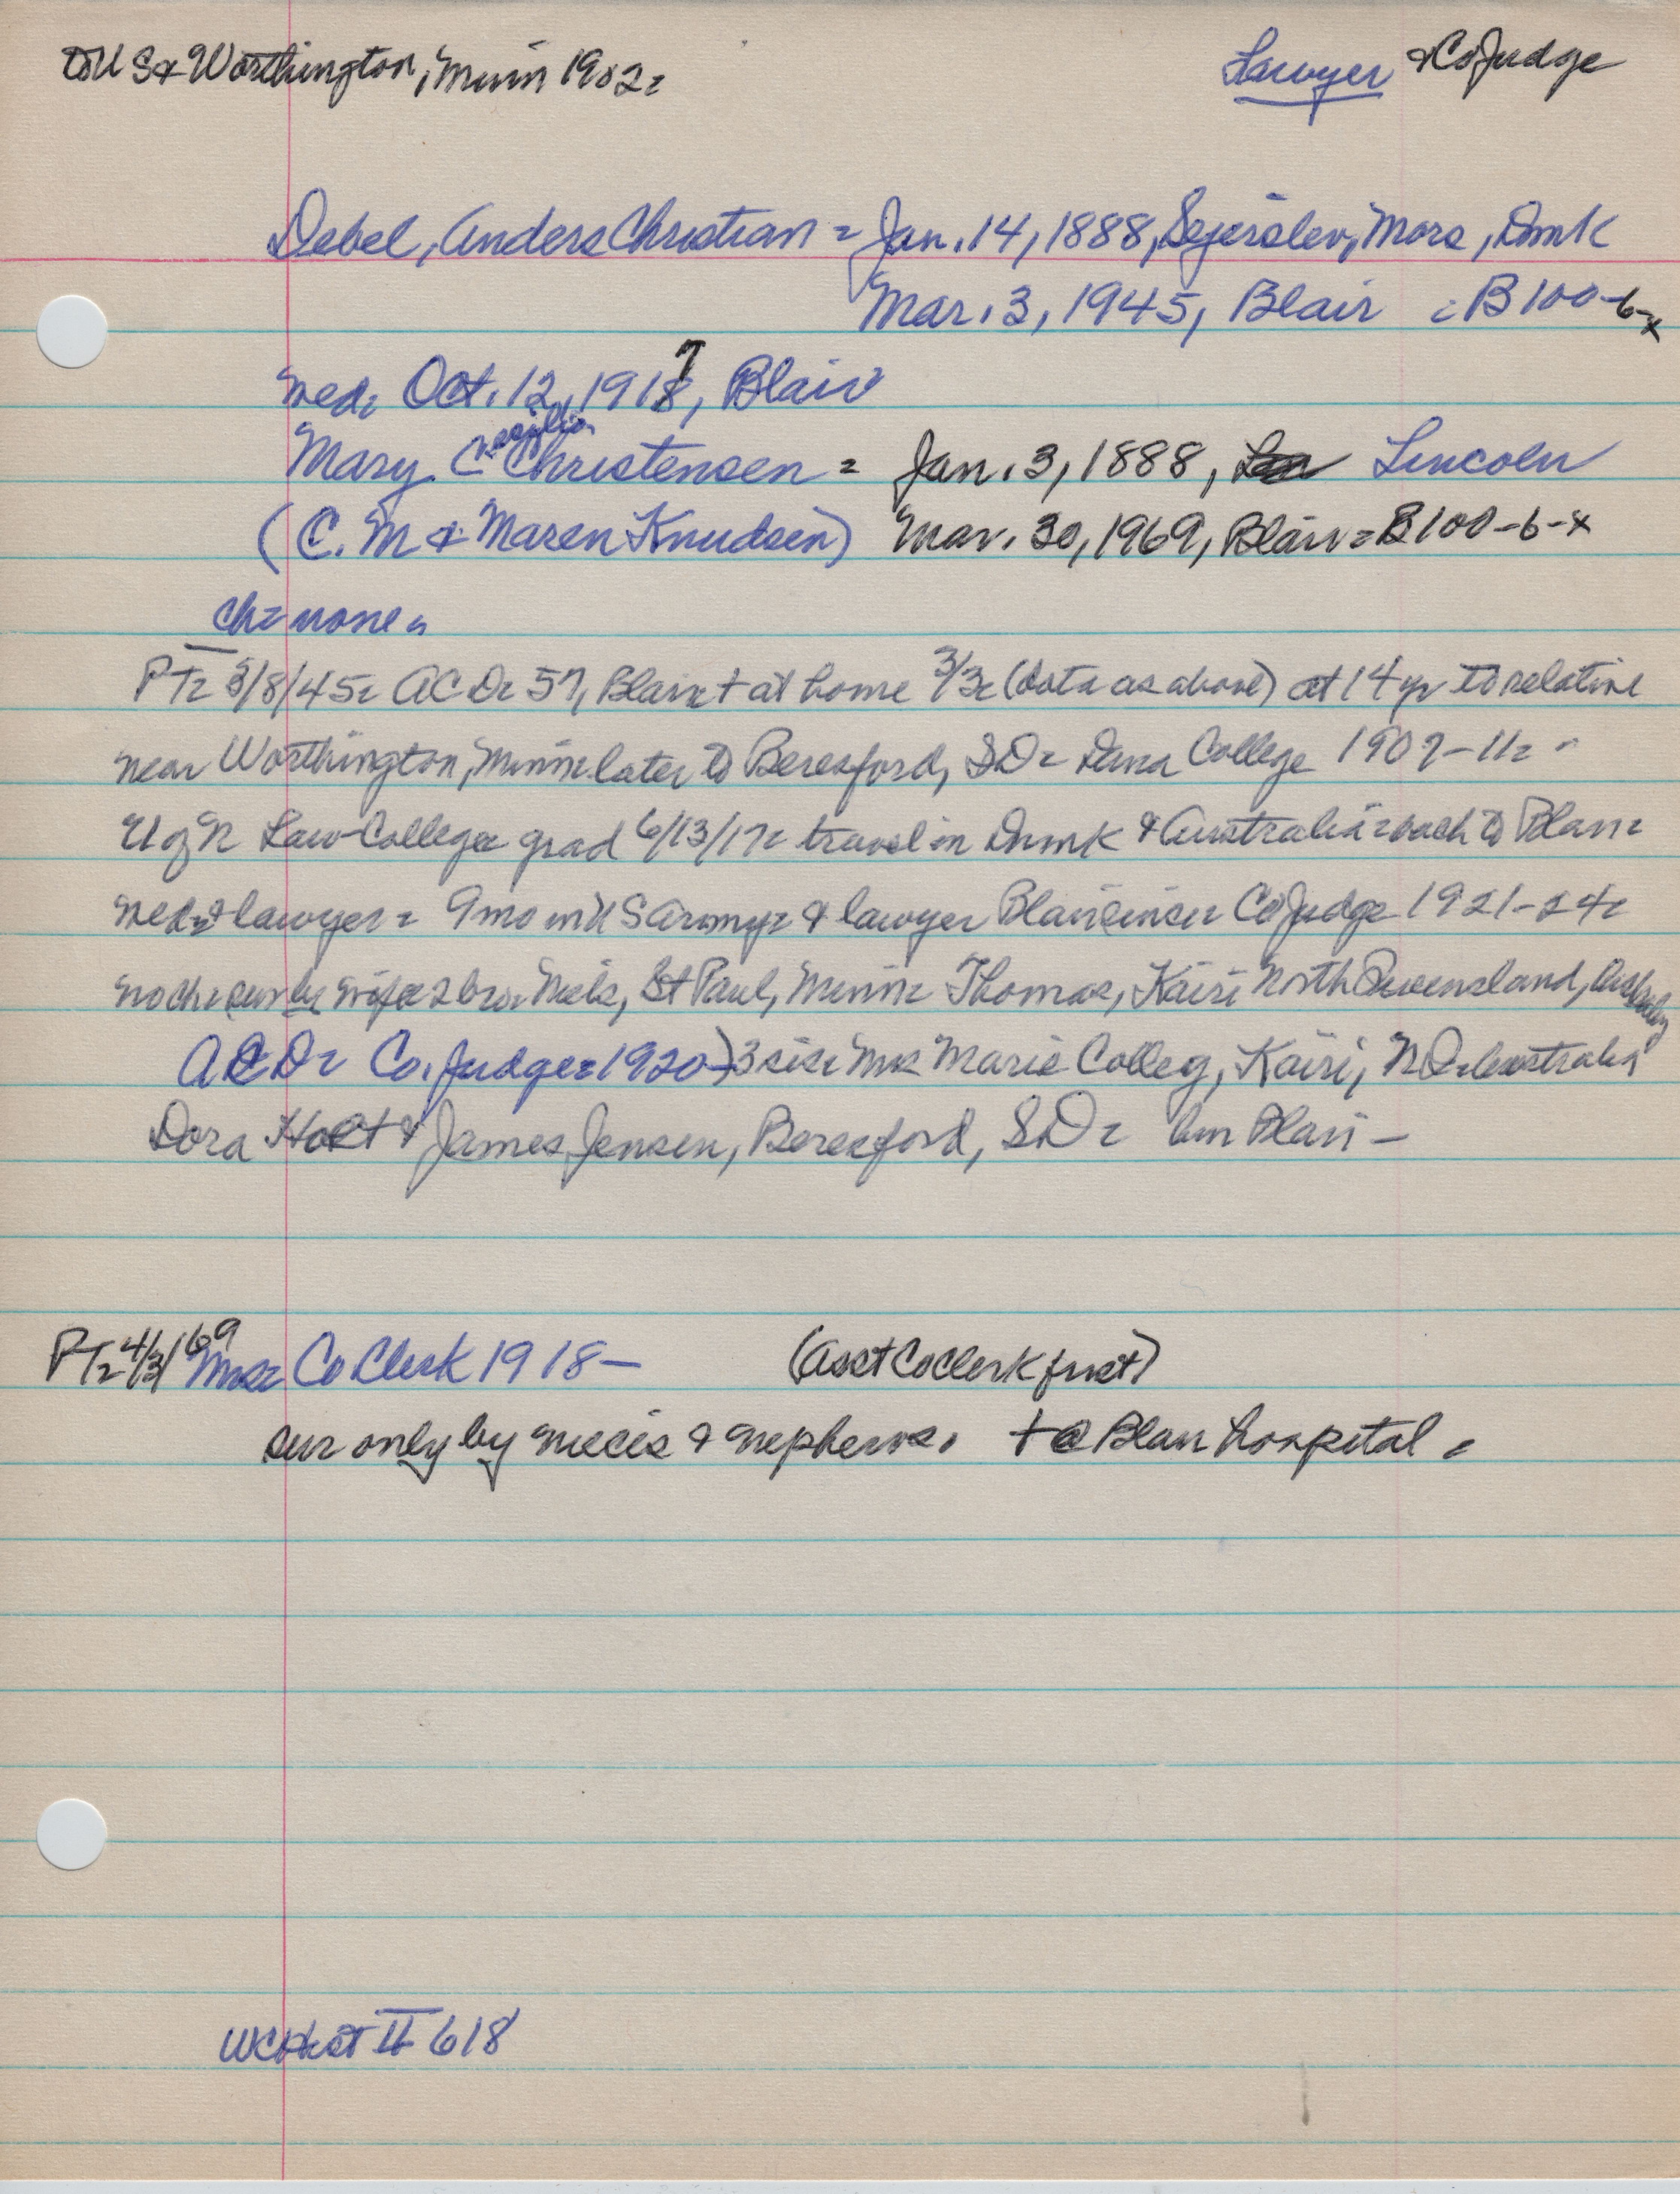 to U S & Worthington, Minn 1902 =
Lawyer & Co Judge
Debel, Anders Christian = Jan. 14, 1888, Sejerslev, Mors, Dmk
Mar. 3, 1945, Blair = B 100-6-x
wed = Oct. 12, 1918, Blair
7
Mary C. Christensen = Jan. 3, 1888, Lincoln
(C. M & Maren Knudsen) Mar. 30, 1969, Blair = B 100-6-x
ch = none =
PT = 3/8/45 = A C D = 57, Blair = + at home 3/3 = (data as above) at 14 yr to relative
near Worthington, Minn = later to Beresford, SD = Dana College 1907-11 =
U of N Law College = grad 6/13/17 = travel in Dnmk & Australia = back to Blair =
wed = & lawyer = 9 mo in U S Army = & lawyer Blair since = Co Judge 1921-24 =
no ch = sur by wife = 2 bro = Niels, St Paul, Minn = Thomas, Kairi North Queensland,
A C D = Co. Judge = 1920-) 3 sis = Mrs Marie Colleg, Kairi, N Q = Australia
Dora Holt & James Jensen, Beresford, SD = bur Blair -
PT = 4/3/69 Mrs = Co Clerk 1918- (Asst Co Clerk first)
sur only by nieces & nephews. + @ Blair hospital =
WCHist II 618